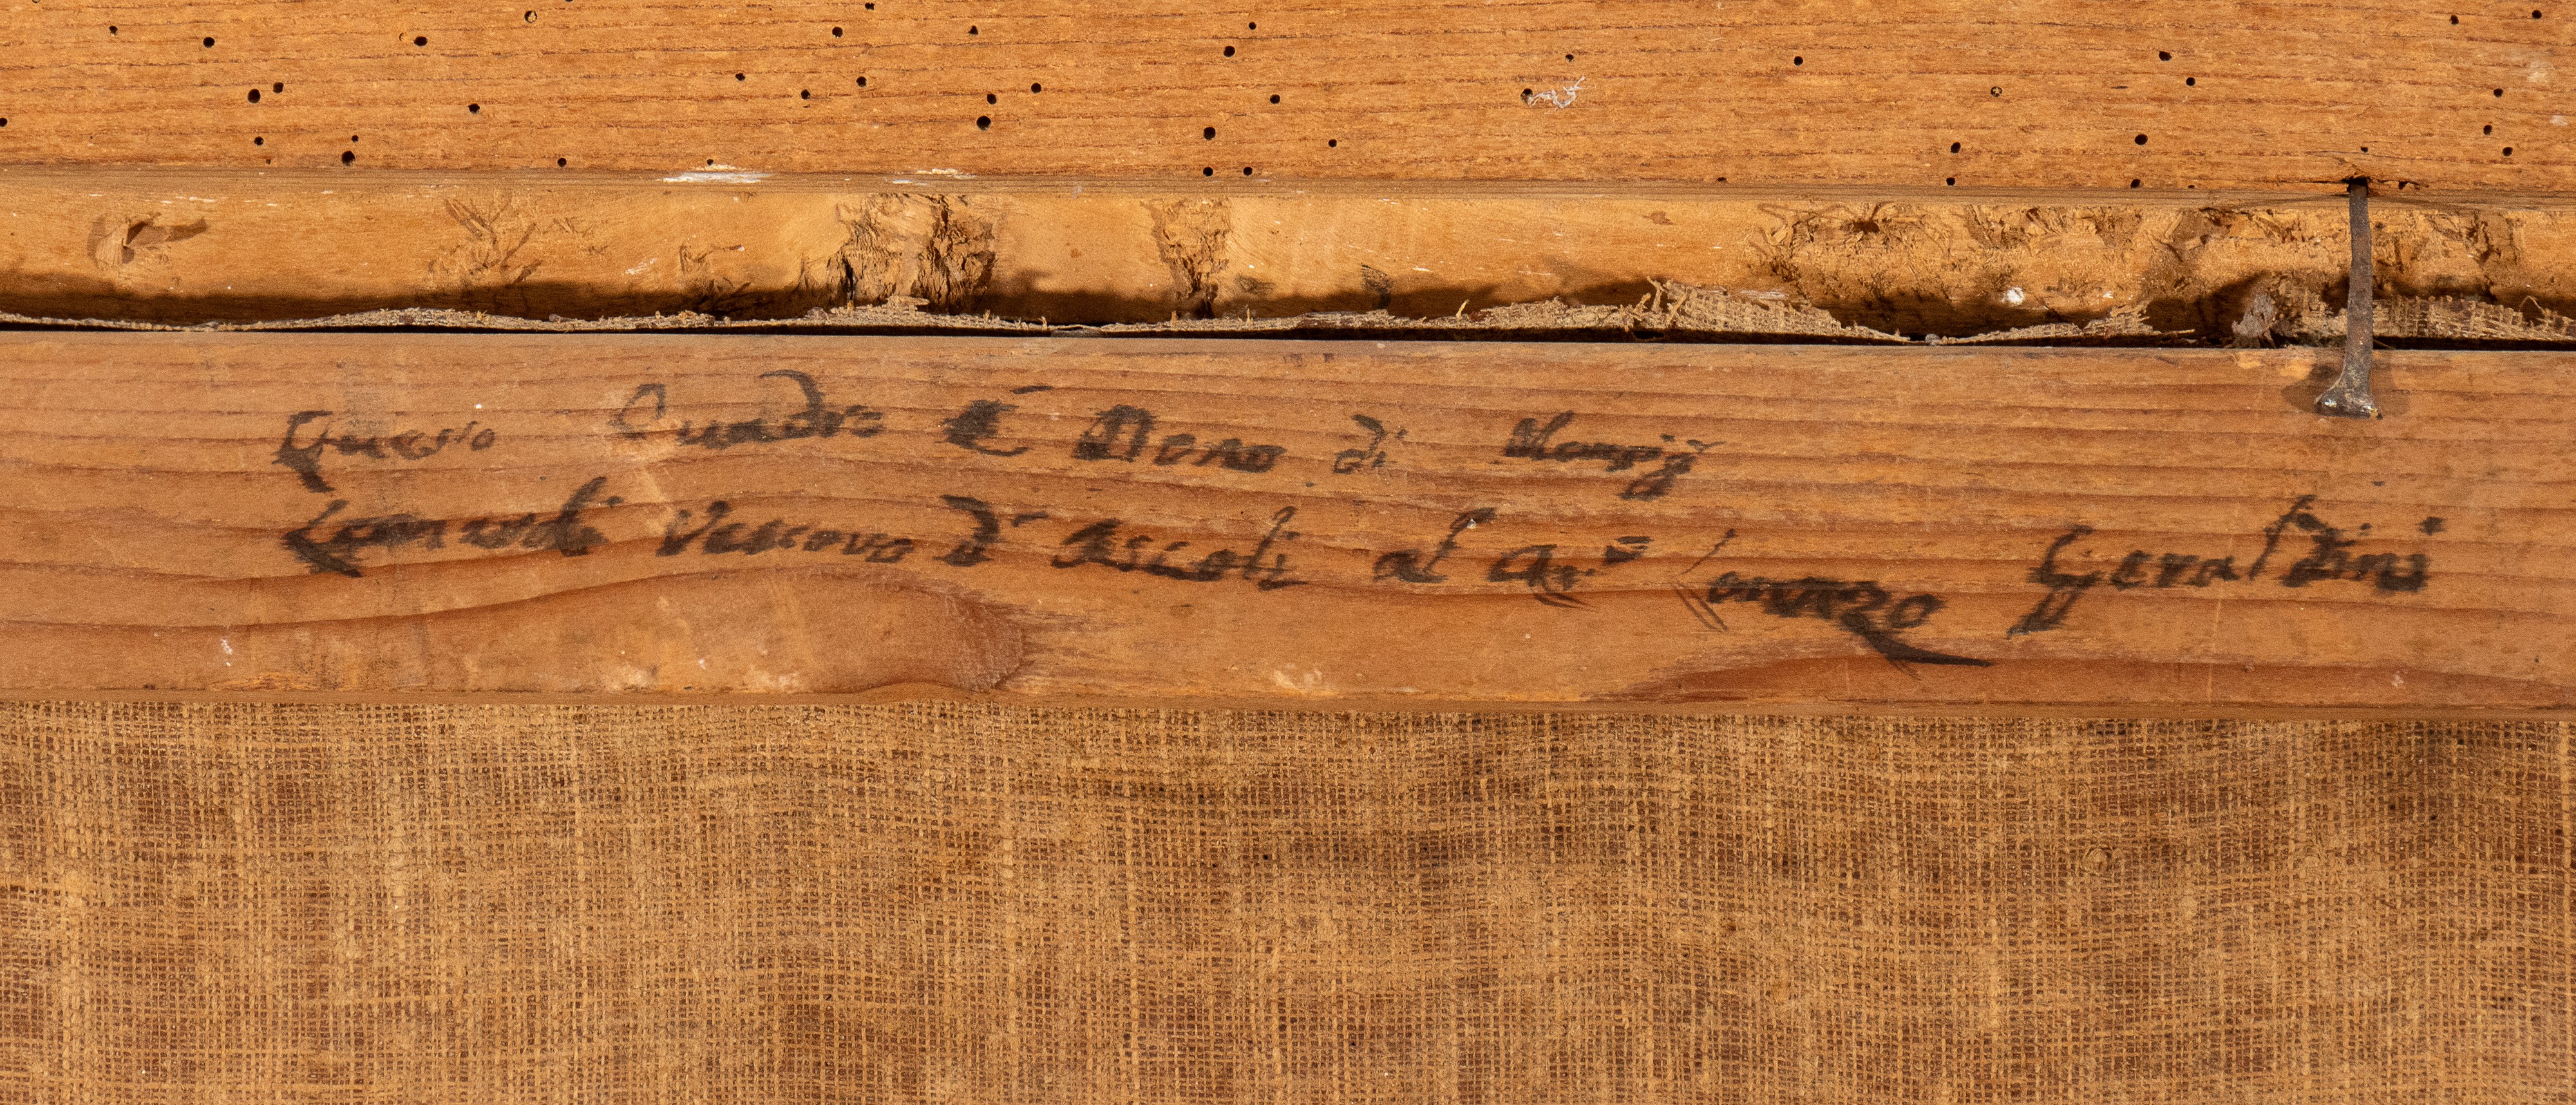 Questo Cuadro È Dono di Monsig.r
Leonardi Vescovo d' Ascoli al Ar.e Lorenzo Geraldini